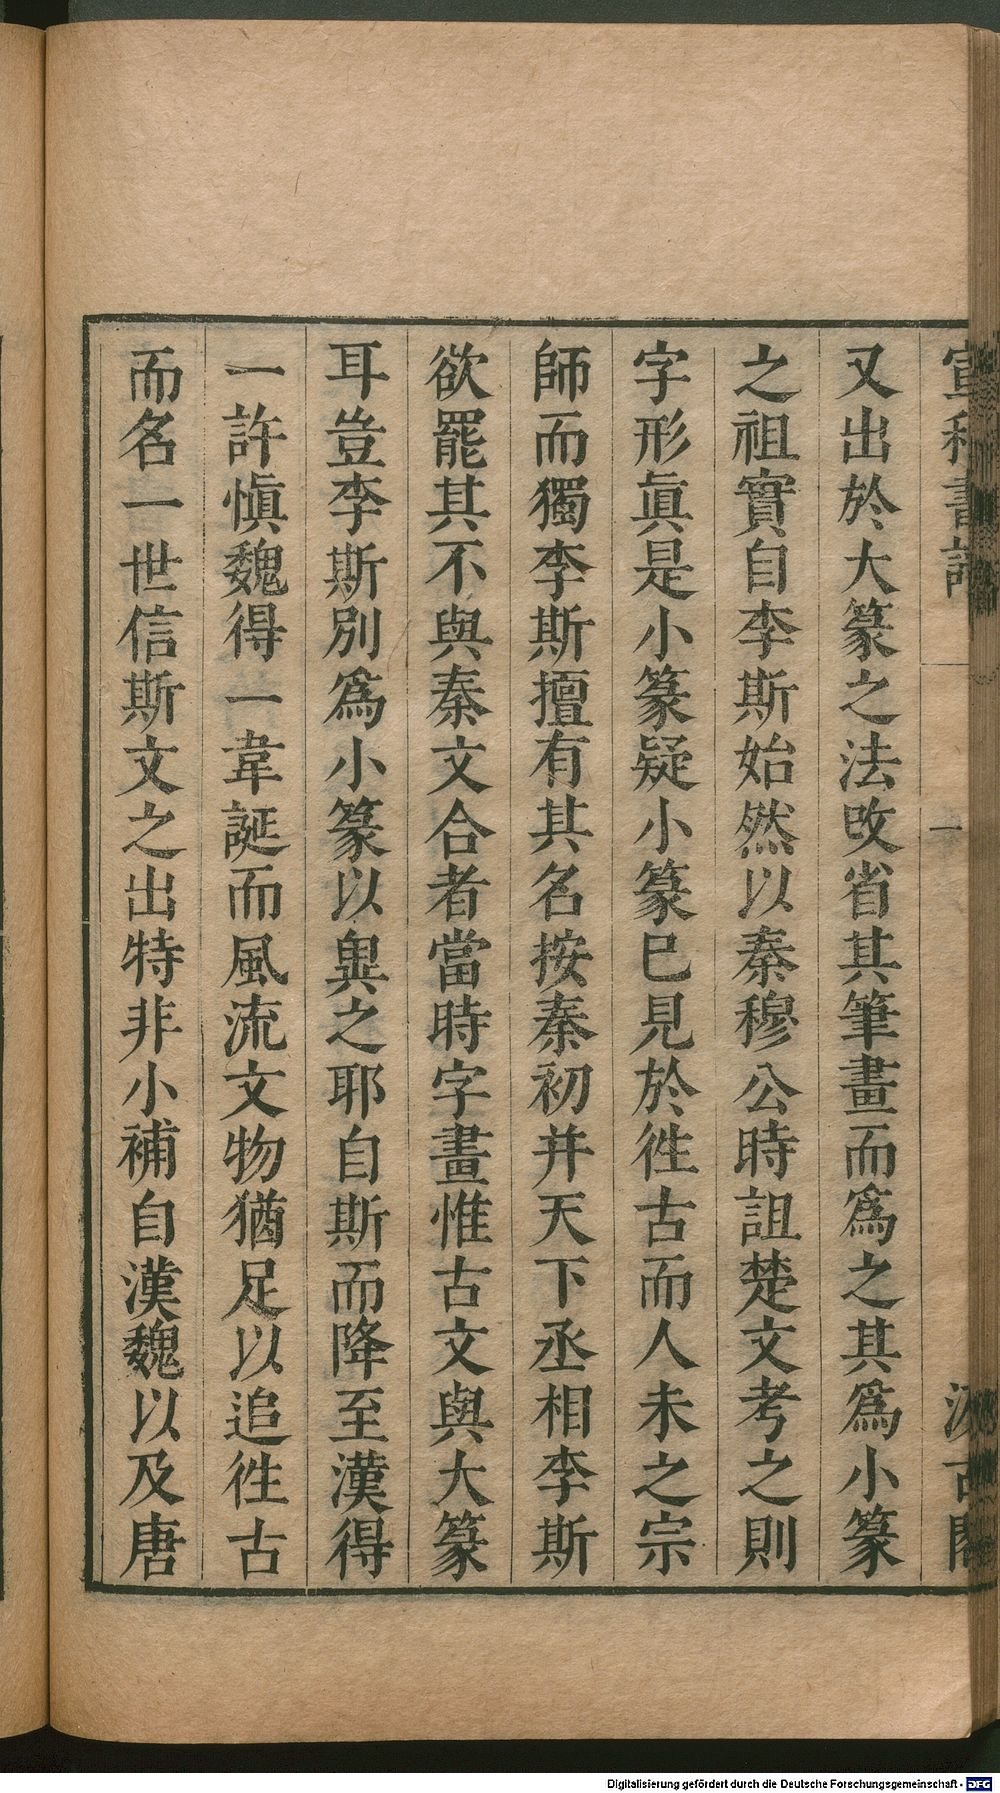 宣和書譜 一 汲古閣
又出於大篆之法改省其筆畫而爲之其爲小篆
之祖實自李斯始然以秦穆公時詛楚文考之則
字形眞是小篆疑小篆已見於徃古而人未之宗
師而獨李斯擅有其名按秦初并天下丞相李斯
欲罷其不與秦文合者當時字畫惟古文與大篆
耳豈李斯別爲小篆以異之耶自斯而降至漢得
一許愼魏得一韋誕而風流文物猶足以追徃古
而名一世信斯文之出特非小補自漢魏以及唐
Digitalisierung gefördert durch die Deutsche Forschungsgemeinschaft - DFG